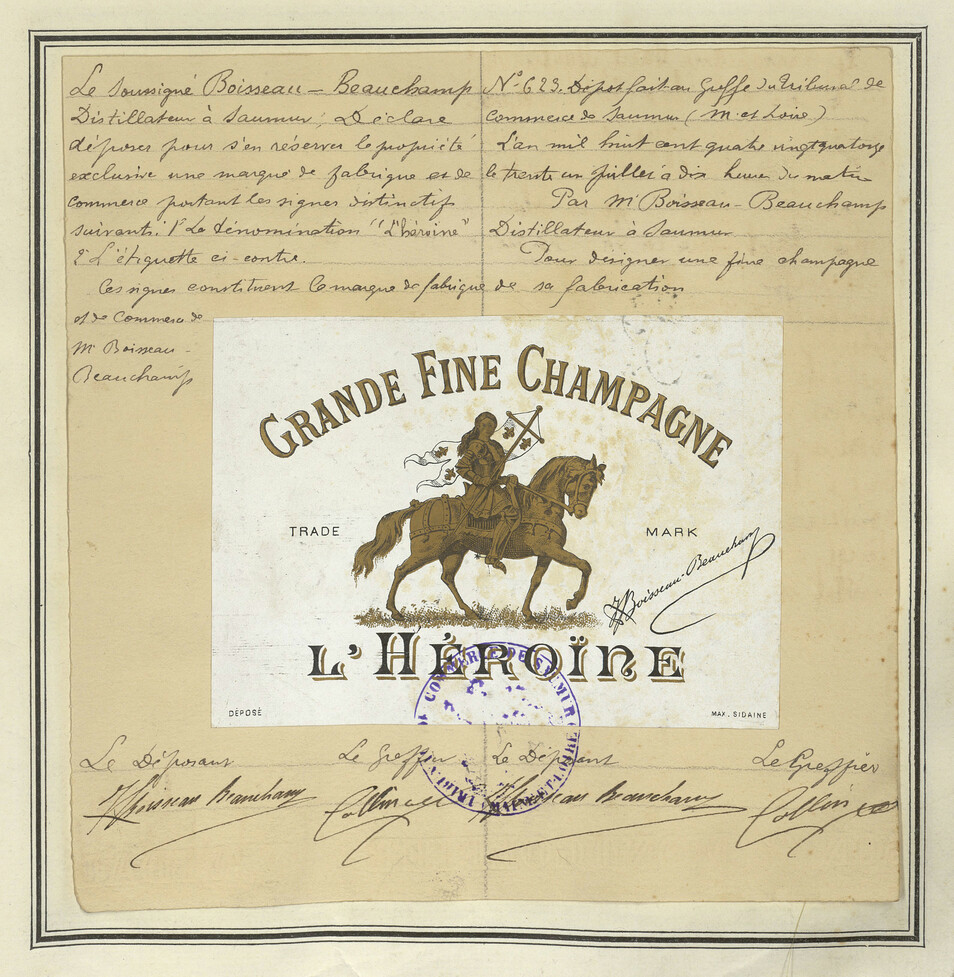 Le Soussigné Boisseau-Beauchamp
Distillateur à Saumur, Déclare
déposer pour s'en réserver la propriété
exclusive une marque de fabrique et de
commerce portant les signes distinctifs
suivants: 1º La dénomination "L'héroïne"
2º L'étiquette ci-contre.
Ces signes constituent la marque de fabrique
et de Commerce de
Mr Boisseau-
Beauchamp
Nº 623. Dépot fait au Greffe du Tribunal de
Commerce de Saumur (M. et Loire)
L'an mil huit cent quatre vingt quatorze
le trente un juillet à dix heures du matin
Par Mr Boisseau-Beauchamp
Distillateur à Saumur
Pour désigner une fine champagne
de sa fabrication
GRANDE FINE CHAMPAGNE
TRADE MARK
Boisseau-Beauchamp
L'HÉROÏNE
DÉPOSÉ
MAX. SIDAINE
TRIBUNAL DE COMMERCE DE SAUMUR
MAINE-ET-LOIRE
Le Déposant
Le Greffier
Le Déposant
Le Greffier
Boisseau Beauchamp
Boisseau Beauchamp